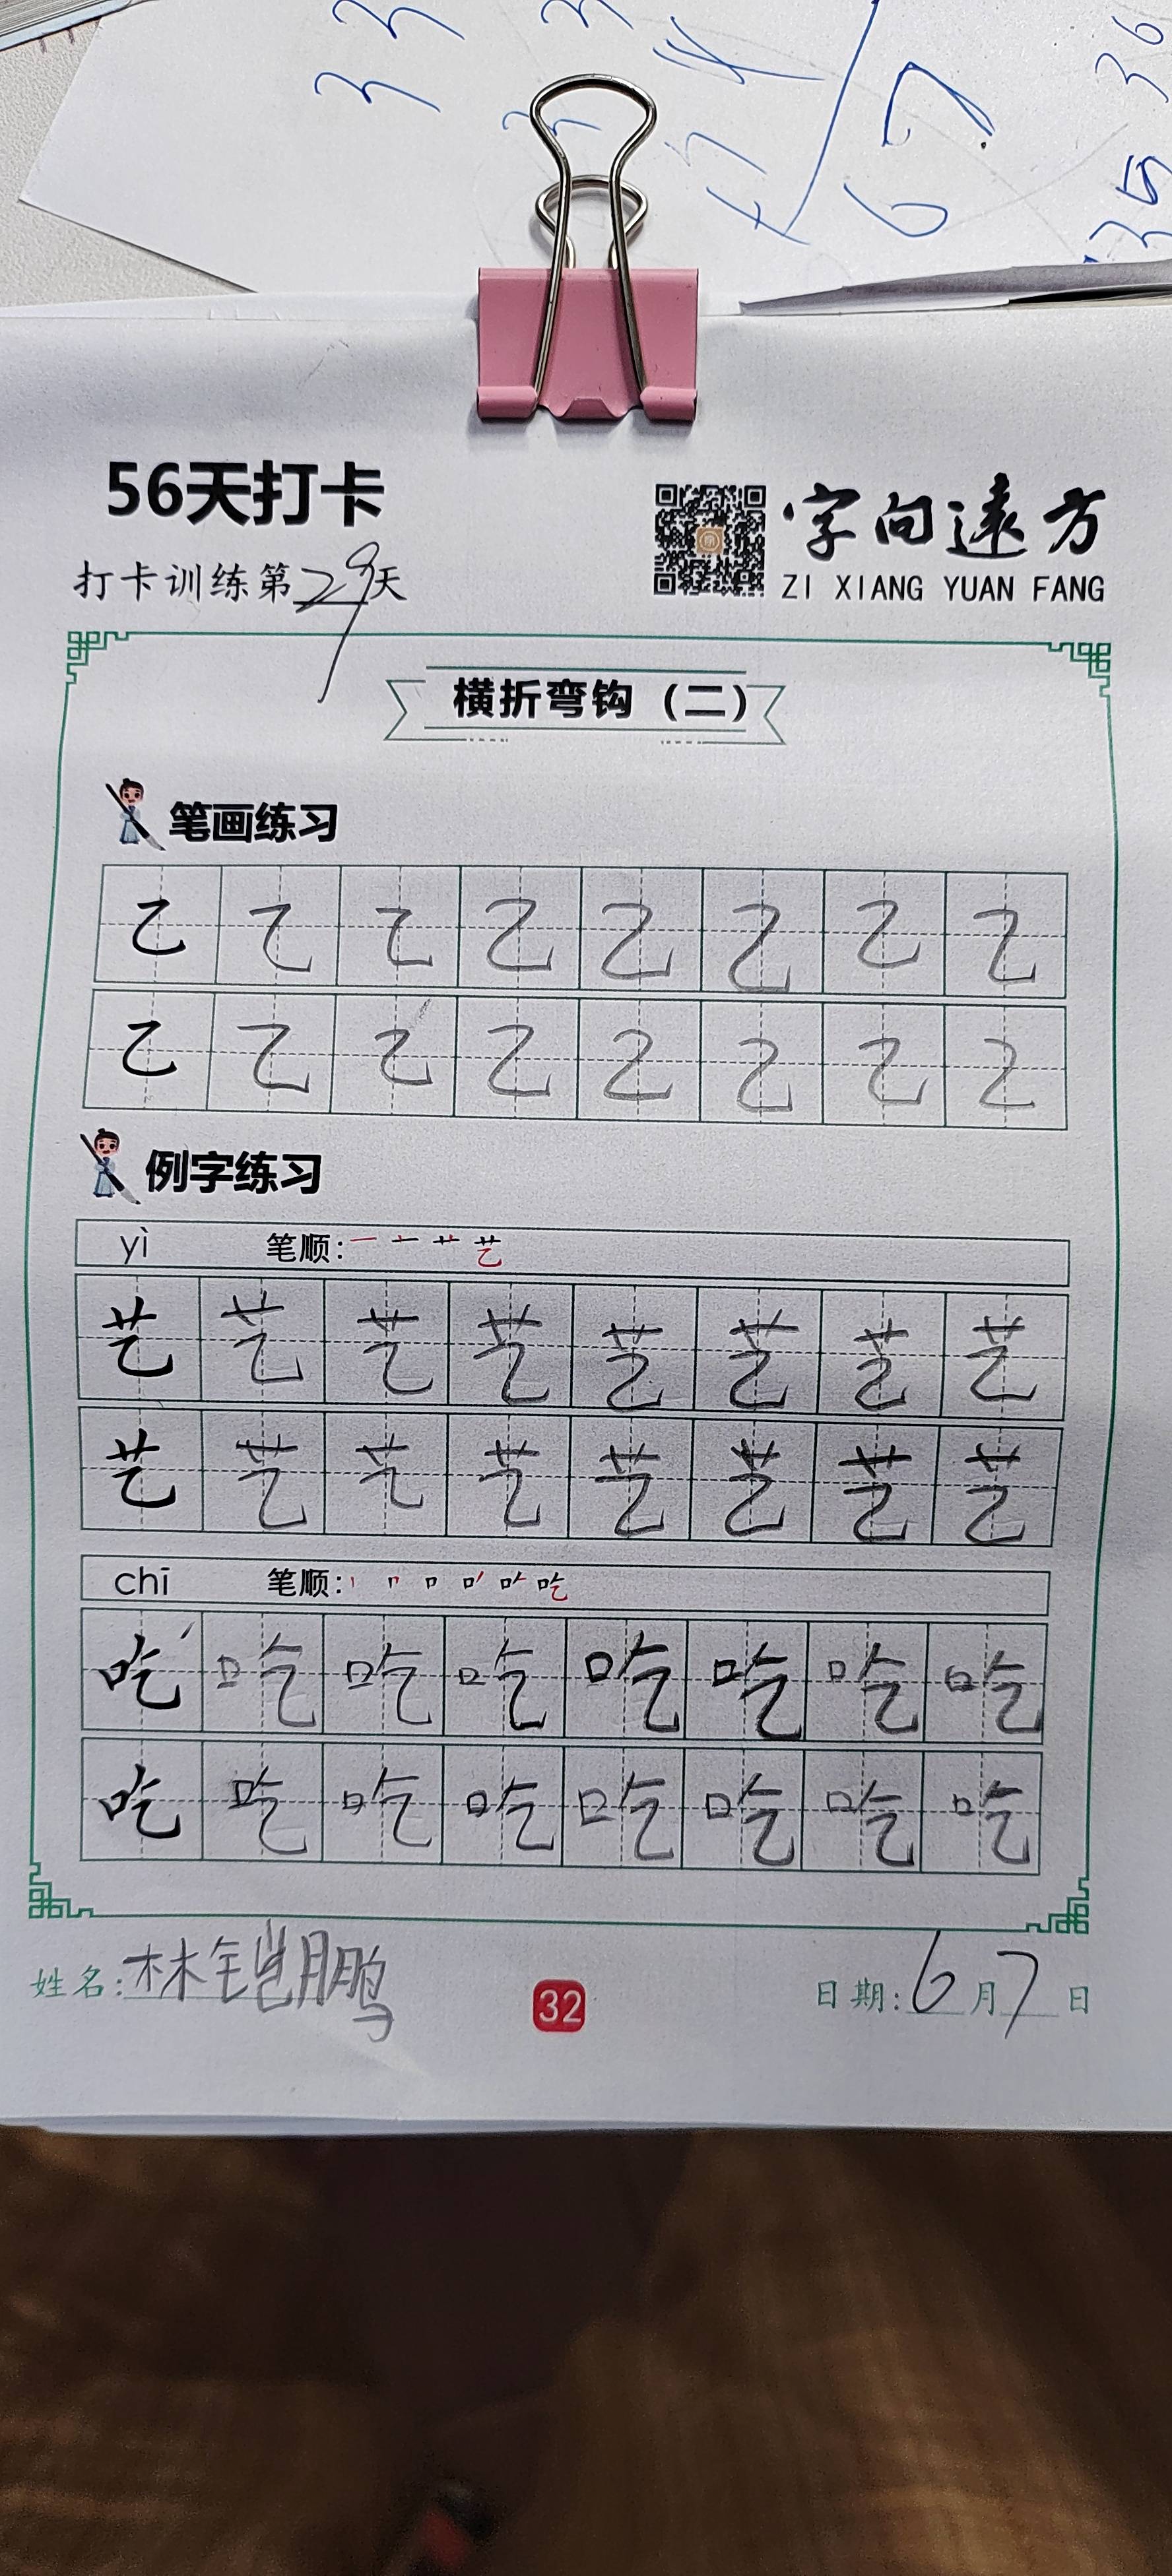 33
3
3
67
36
35
56天打卡
字向遠方
打卡训练第29天
ZI XIANG YUAN FANG
横折弯钩（二）
笔画练习
乙乙乙乙乙乙乙乙
乙乙乙乙乙乙乙乙
例字练习
yì 笔顺: 一 艹 艺
艺艺艺艺艺艺艺艺
艺艺艺艺艺艺艺艺
chī 笔顺: 丨 口 吃
吃吃吃吃吃吃吃吃
吃吃吃吃吃吃吃吃
姓名:林铠鹏
32
日期:6月7日